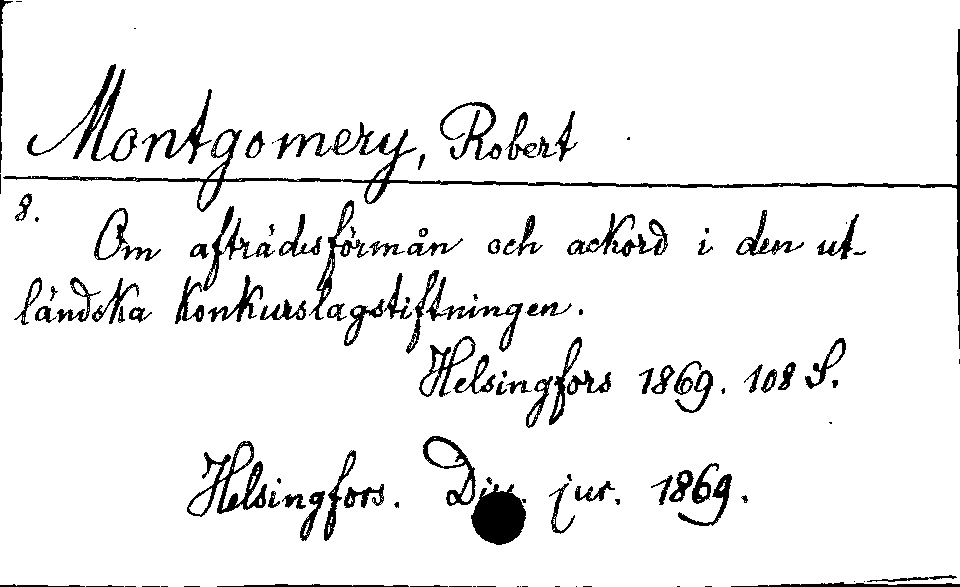 Montgomery, Robert
8.
Om afträdesförmån och ackord i den ut-
ländska konkurslagstiftningen.
Helsingfors 1869. 108 S.
Helsingfors. Diss. jur. 1869.